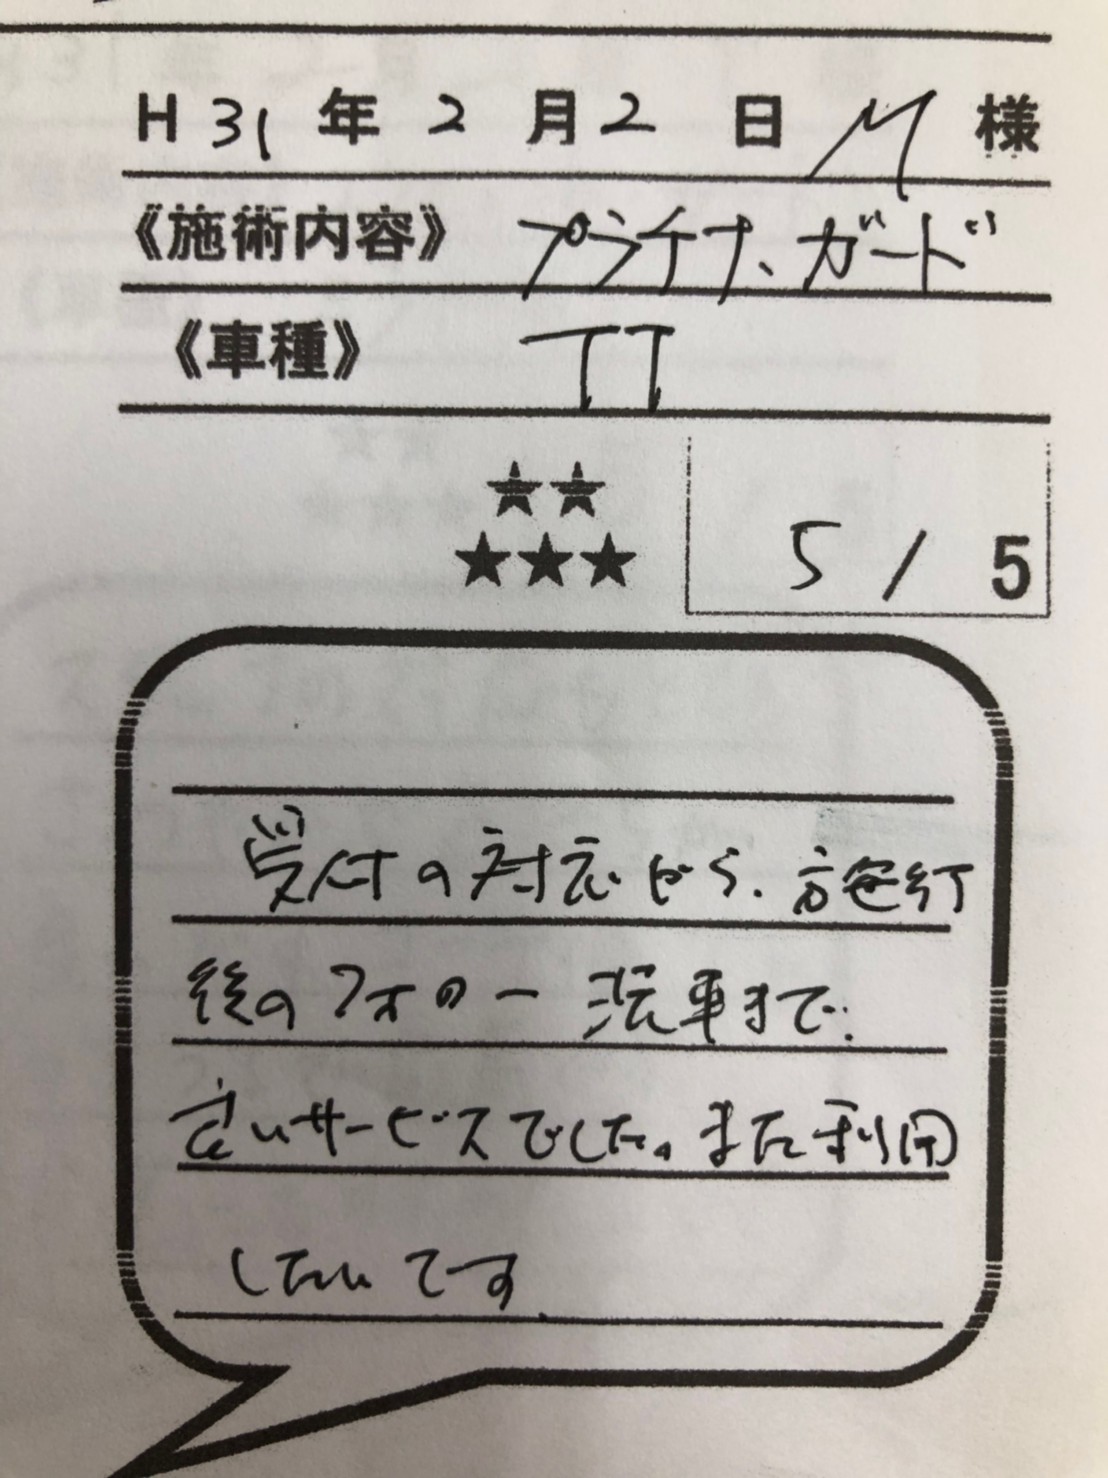 H 31 年 2 月 2 日 M 様
《施術内容》 プラチナ、ガード
《車種》 TT
★★
★★★ 5 / 5
受付の対応から、施行
後のフォロー 洗車まで、
良いサービスでした。また利用
したいです